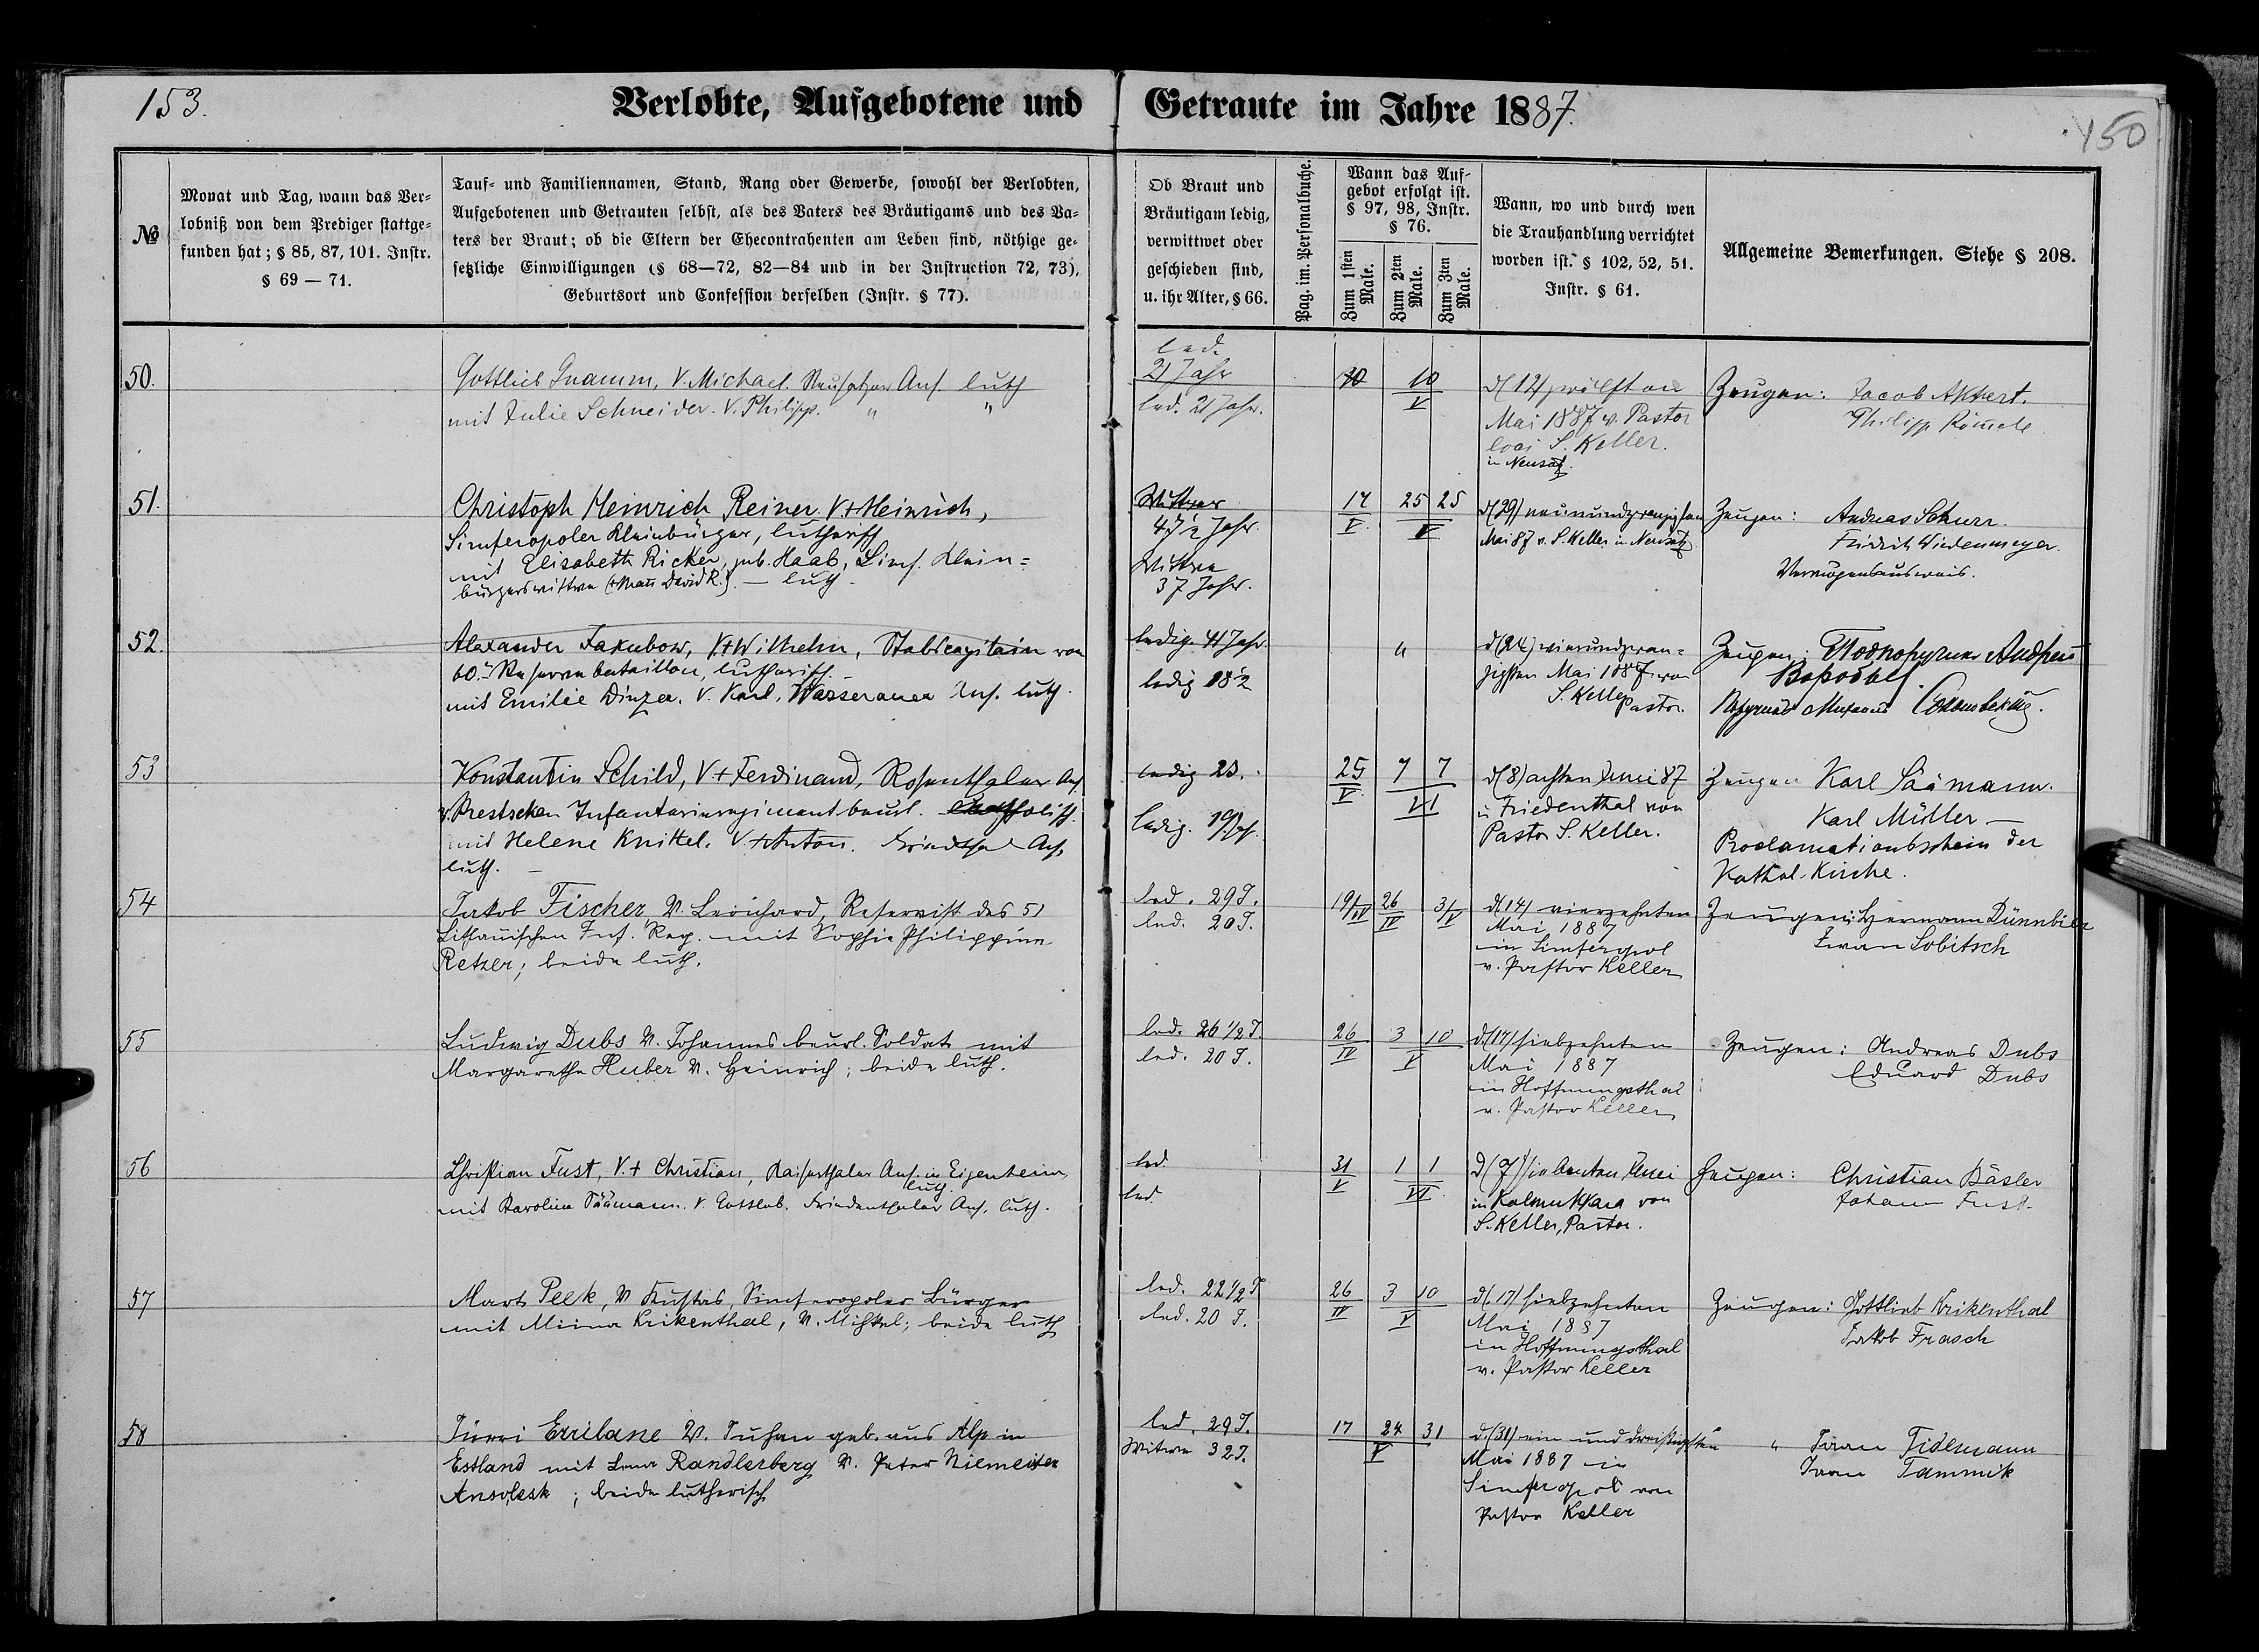 153.
Verlobte, Aufgebotene und Getraute im Jahre 1887.
150
№
Monat und Tag, wann das Ver=
lobniß von dem Prediger stattge=
funden hat; § 85, 87, 101. Instr.
§ 69 — 71.
Tauf= und Familiennamen, Stand, Rang oder Gewerbe, sowohl der Verlobten,
Aufgebotenen und Getrauten selbst, als des Vaters des Bräutigams und des Va=
ters der Braut; ob die Eltern der Ehecontrahenten am Leben sind, nöthige ge=
setzliche Einwilligungen (§ 68—72, 82—84 und in der Instruction 72, 73),
Geburtsort und Confession derselben (Instr. § 77).
Ob Braut und
Bräutigam ledig,
verwittwet oder
geschieden sind,
u. ihr Alter, § 66.
Pag. im. Personalbuche.
Wann das Auf=
gebot erfolgt ist.
§ 97, 98, Instr.
§ 76.
Zum 1sten
Male.
Zum 2ten
Male.
Zum 3ten
Male.
Wann, wo und durch wen
die Trauhandlung verrichtet
worden ist. § 102, 52, 51.
Instr. § 61.
Allgemeine Bemerkungen. Siehe § 208.
50.
Gottlieb Gnamm, V. Michael. Neusatzer Ans. luth
mit Julie Schneider. V. Philipp. " "
led.
21 Jahr
led. 21 Jahr.
10
V
d (12) zwölften
Mai 1887 v. Pastor
loci S. Keller.
in Neusatz.
Zeugen: Jacob
Philipp
51.
Christoph Heinrich Reiner. V + Heinrich,
Simferopoler Kleinbürger, lutherisch
mit Elisabeth Ricker, geb. Haab, Simf. Klein=
bürgerswittwe (+ Mann David R.) — luth.
Wittwer
47½ Jahr.
Wittwe
37 Jahr.
17 25 25
V. V
d (29) neunundzwanzigsten
Mai 87 v. S. Keller in Neusatz
Zeugen: Andreas Schurr.
Fridrich Wiedenmeyer.
Vermögensausweis.
52.
Alexander Jakubow, V. + Wilhelm, Stabscapitain vom
60. Reservebataillon, lutherisch.
mit Emilie Dinzer. V. Karl, Wasserauer Ans. luth.
ledig. 41 Jahr.
ledig 18½
"
d (24) vierundzwan=
zigsten Mai 1887 von
S. Keller Pastor.
Zeugen: Подпоручик Андрей
Поручикъ Михаилъ
53
Konstantin Schild, V + Ferdinand, Rosenthaler Ans.
v. Infanterieregiment beurl. katholisch.
mit Helene Knittel. V. + Anton. Friedthal Ans.
luth. —
ledig 23.
ledig. 19 J.
25 7 7
V VI
d (8) achten Juni 87
in Friedenthal von
Pastor S. Keller.
Zeugen Karl Säämann.
Karl Müller —
Proclamationsschein der
Kathol. Kirche.
54
Jakob Fischer, V. Leonhard, Reservist des 51
Lithauischen Inf. Reg. mit Sophie Philippine
Retzer; beide luth.
led. 29 J.
led. 20 J.
19/IV 26 3/V
IV
d (14) vierzehnten
Mai 1887
in Simferopol
v. Pastor Keller
Zeugen: Hermann Dünnbier
Iwan Sobitsch
55
Ludwig Dubs V. Johannes beurl. Soldat mit
Margaretha Huber V. Heinrich; beide luth.
led. 26 1/2 J.
led. 20 J.
26 3 10
IV V
d (17) siebzehnten
Mai 1887
in Hoffnungsthal
v. Pastor Keller
Zeugen: Andreas Dubs
Eduard Dubs
56
Christian Fust, V. + Christian, Kaiserthaler Ans. in Eigenheim,
luth.
mit Karolina Säämann. V. Gottlob. Friedenthaler Ans. luth.
led.
led.
31 1 1
V VI.
d (7) siebenten Juni
in Kalmukkara von
S. Keller, Pastor.
Zeugen: Christian Bäsler
Johann Fust.
57
Mart Peek, V Kustas, Simferopoler Bürger
mit Miina Krikenthal, V. Mihkel; beide luth
led. 22 1/2 J
led. 20 J.
26 3 10
IV V
d. 17) siebzehnten
Mai 1887
in Hoffnungsthal
v. Pastor Keller
Zeugen: Gottlieb Krikenthal
Jakob Frasch
58
Jürri Errilane V. Juhan geb. aus Alp in
Estland mit Lena Randlerberg V. Peter Niemeister
Ansolesk; beide lutherisch
led. 29 J.
Witwe 32 J.
17 24 31
V
d. (31) ein und dreißigsten
Mai 1887 in
Simferopol von
Pastor Keller
" Jaan Tidemann
Jaan Tammik